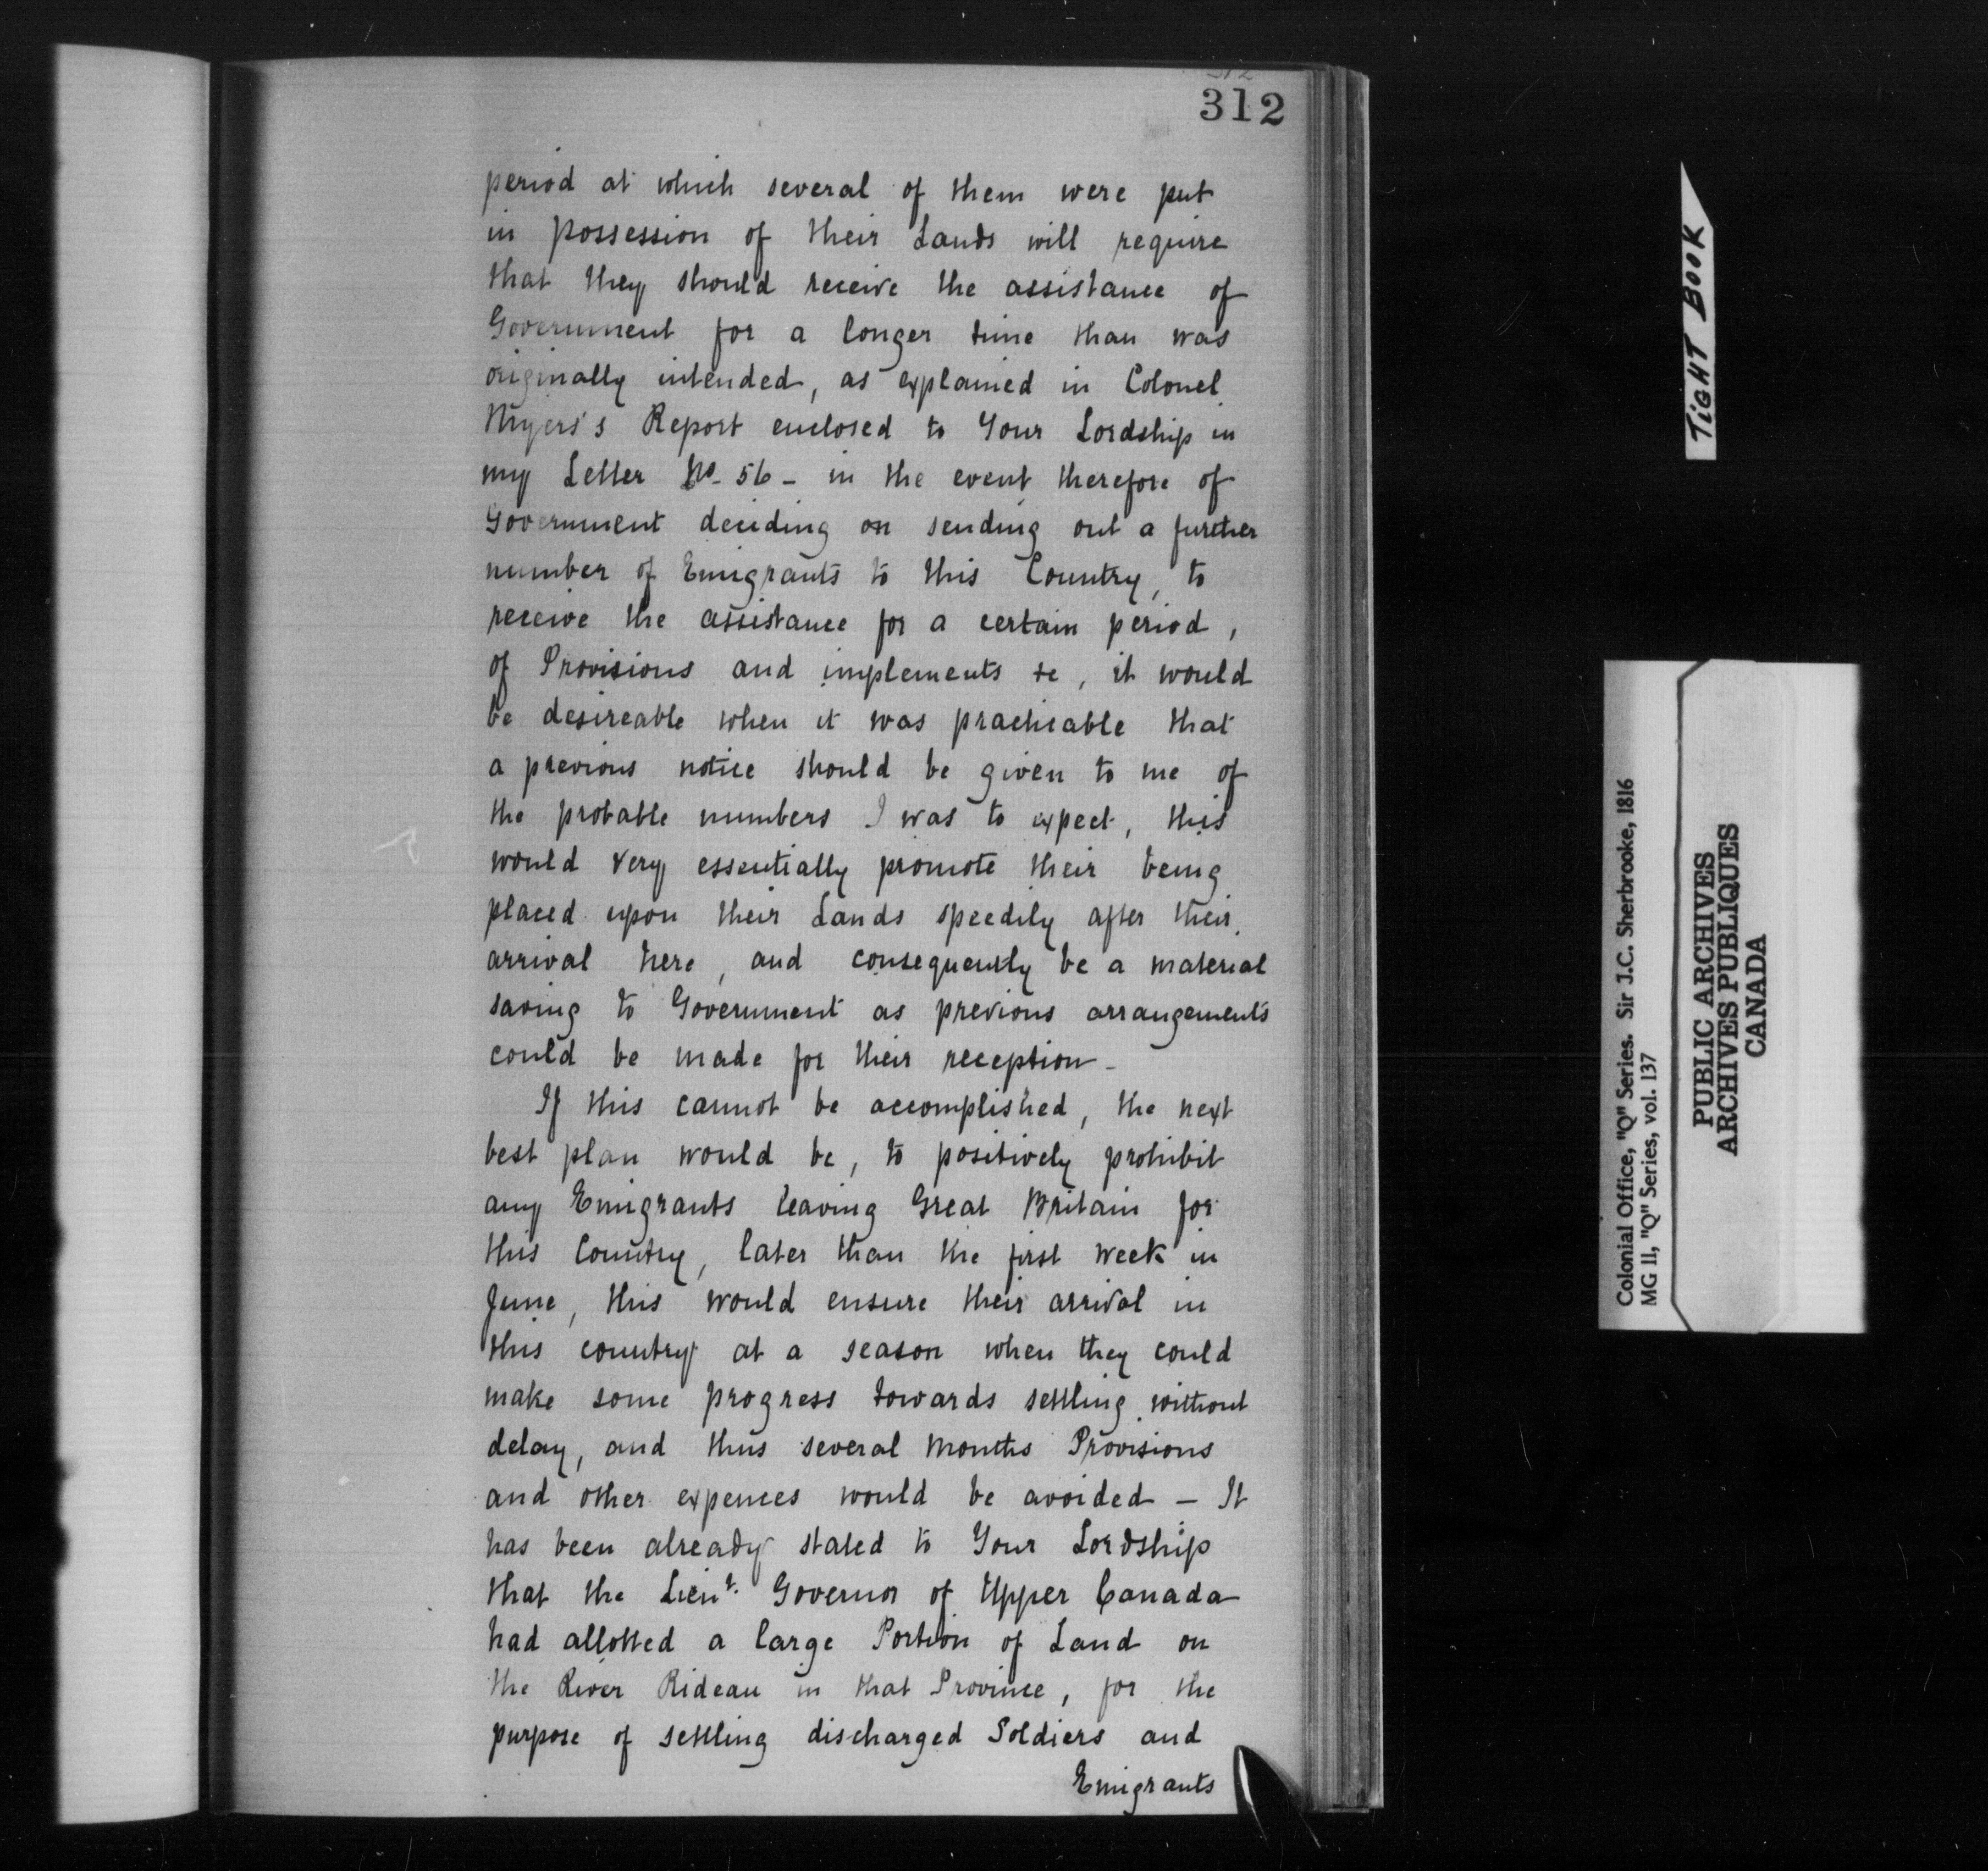 312
period at which several of them were put
in possession of their Lands will require
that they should receive the assistance of
Government for a longer time than was
originally intended, as explained in Colonel
Myers's Report enclosed to Your Lordship in
my Letter No. 56 - in the event therefore of
Government deciding on sending out a further
number of Emigrants to this Country, to
receive the assistance for a certain period,
of Provisions and implements &c, it would
be desireable when it was practicable that
a previous notice should be given to me of
the probable numbers I was to expect, this
would very essentially promote their being
placed upon their Lands speedily after their
arrival here, and consequently be a material
saving to Government as previous arrangements
could be made for their reception -
If this cannot be accomplished, the next
best plan would be, to positively prohibit
any Emigrants leaving Great Britain for
this Country, later than the first week in
June, this would ensure their arrival in
this country at a season when they could
make some progress towards settling without
delay, and thus several months Provisions
and other expences would be avoided - It
has been already stated to Your Lordship
that the Lieut. Governor of Upper Canada
had allotted a large Portion of Land on
the River Rideau in that Province, for the
purpose of settling discharged Soldiers and
Emigrants
TIGHT BOOK
Colonial Office, "Q" Series. Sir J.C. Sherbrooke, 1816
MG 11, "Q" Series, vol. 137
PUBLIC ARCHIVES
ARCHIVES PUBLIQUES
CANADA